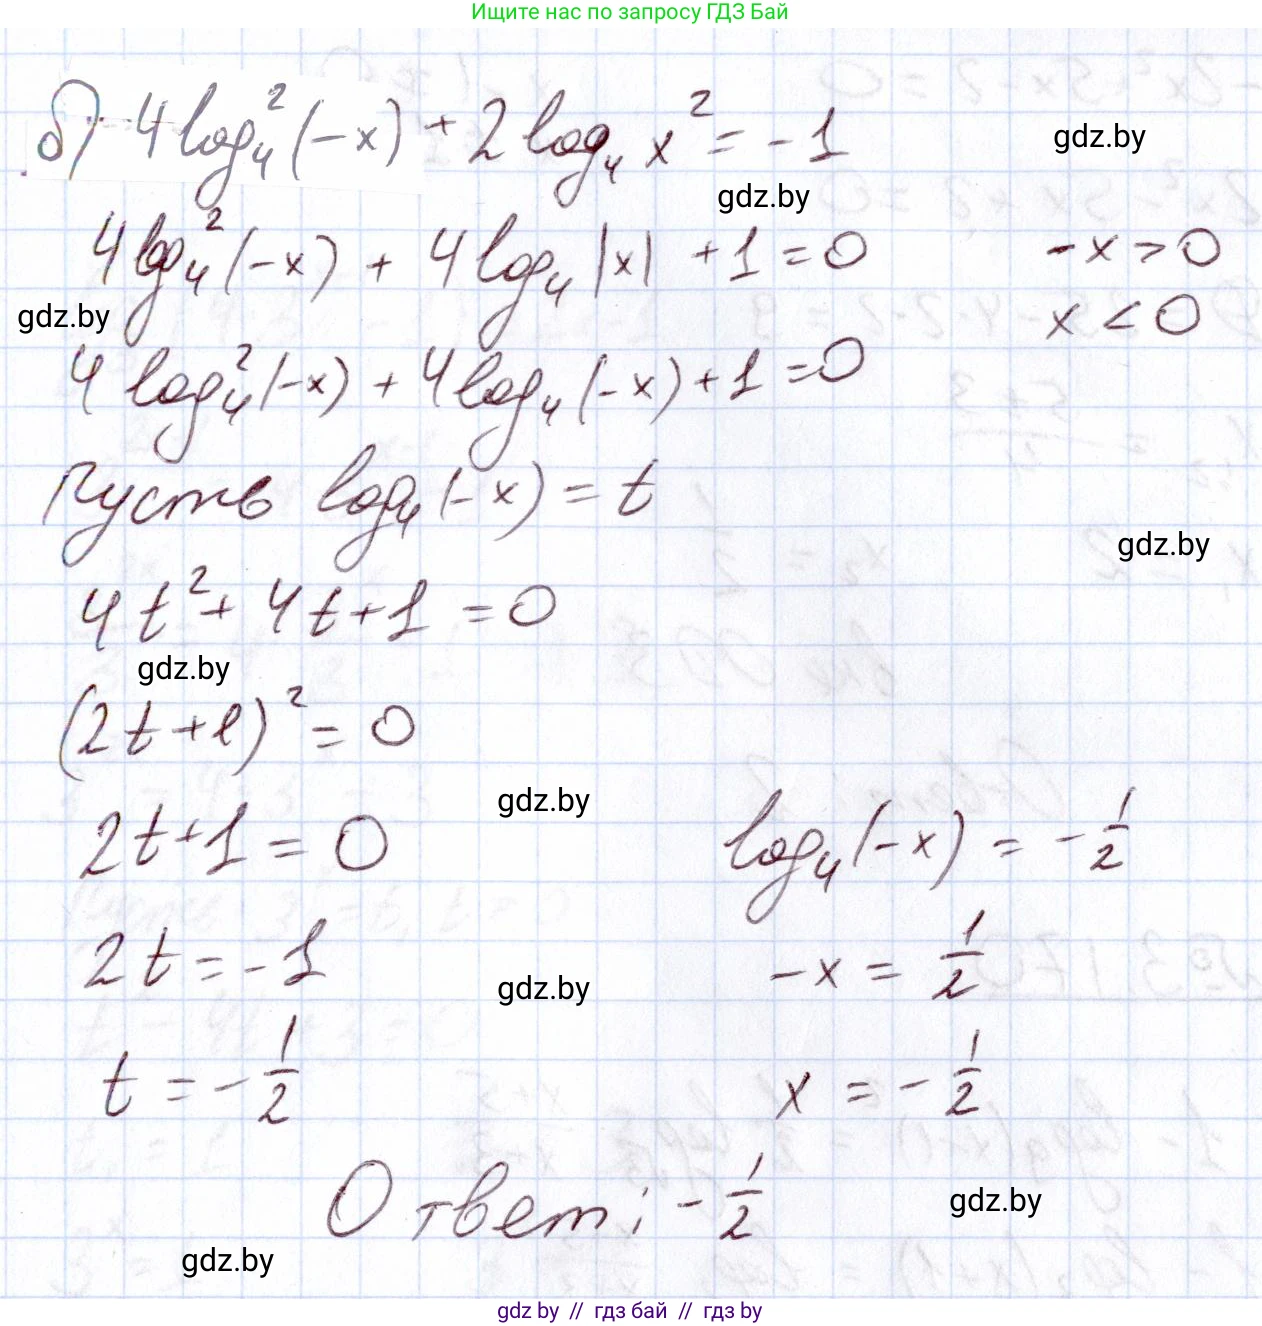 Ищите нас по запросу ГДЗ Бай
б) 4log₄²(-x) + 2log₄ x² = -1
gdz.by
gdz.by
4log₄²(-x) + 4log₄|x| + 1 = 0
-x > 0
gdz.by
x < 0
4log₄²(-x) + 4log₄(-x) + 1 = 0
Пусть log₄(-x) = t
gdz.by
4t² + 4t + 1 = 0
gdz.by
(2t + 1)² = 0
gdz.by
2t + 1 = 0
log₄(-x) = -1/2
2t = -1
-x = 1/2
gdz.by
t = -1/2
x = -1/2
Ответ: -1/2
gdz.by
gdz.by
gdz by // гдз бай // гдз by